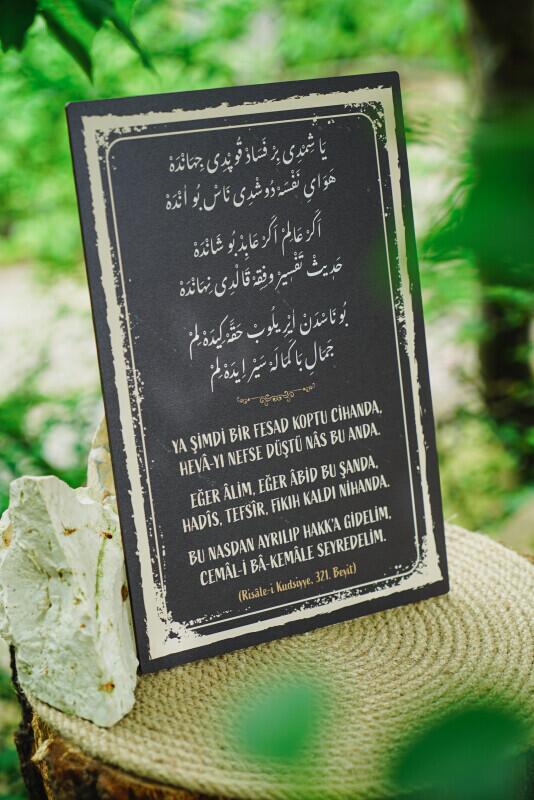 يَا شِمْدِى بِرْ فَسَادْ قُوپْدِى جِهَانْدَهْ
هَوَاىِ نَفْسَهْ دُوشْدِى نَاسْ بُو اَنْدَهْ
اَكَرْ عَالِمْ اَكَرْ عَابِدْ بُو شَانْدَهْ
حَدِيثْ تَفْسِيرْ وفِقِهْ قَالْدِى نِهَانْدَهْ
بُو نَاسْدَنْ اَيْرِيلُوبْ حَقَّهْ كِيدَهْ لِمْ
جَمَالِ بَا كَمَالَهْ سَيْرْ اِيدَهْ لِمْ
YA ŞİMDİ BİR FESAD KOPTU CİHANDA,
HEVÂ-YI NEFSE DÜŞTÜ NÂS BU ANDA.
EĞER ÂLİM, EĞER ÂBİD BU ŞANDA,
HADÎS, TEFSÎR, FIKIH KALDI NİHANDA.
BU NASDAN AYRILIP HAKK'A GİDELİM,
CEMÂL-İ BÂ-KEMÂLE SEYREDELİM.
(Risâle-i Kudsiyye, 321. Beyit)